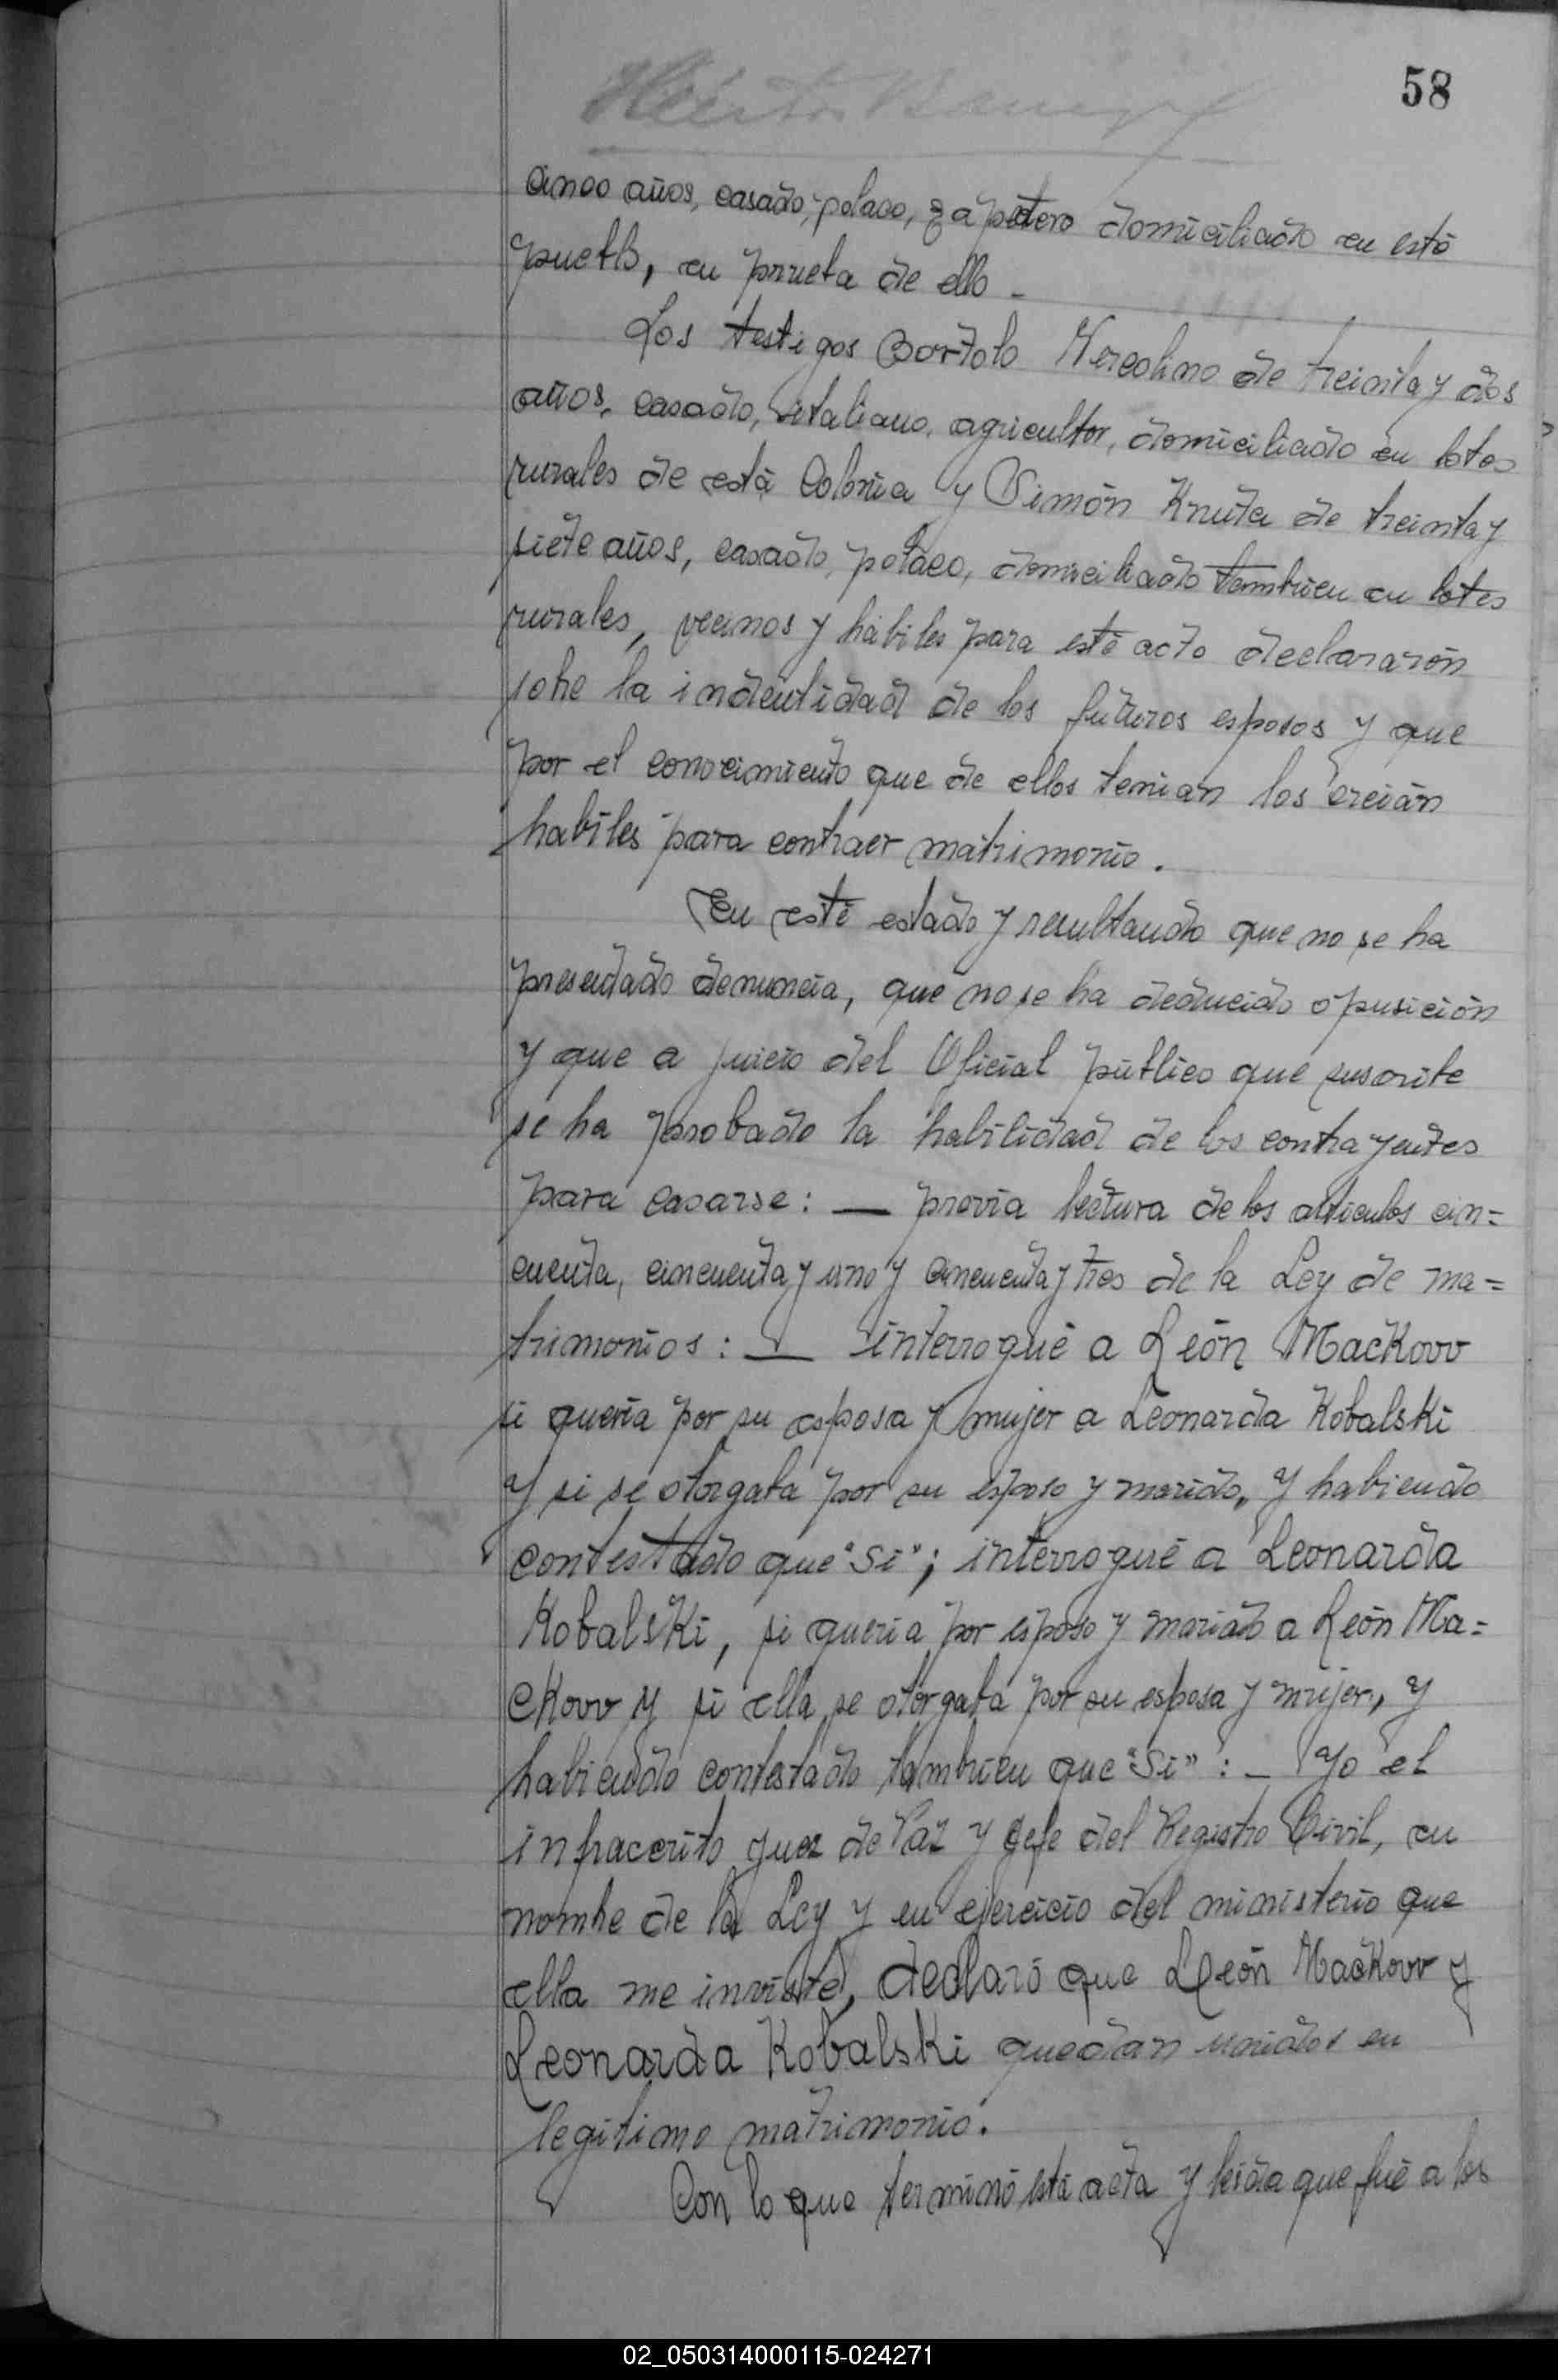 58
cinco años, casado, polaco, zapatero domiciliado en está
pueblo, en prueba de ello -
Los testigos Bortolo Nercolino de treinta y dos
años, casado, italiano, agricultor, domiciliado en lotes
rurales de está Colonia y Simón Knuta de treinta y
siete años, casado, polaco, domiciliado tambien en lotes
rurales, vecinos y hábiles para esté acto declararón
sobre la indentidad de los futuros esposos y que
por el conocimiento que de ellos tenian los creián
habiles para contraer matrimonio.
En esté estado y resultando que no se ha
presentado denuncia, que no se ha deducido opusición
y que a juicio del Oficial público que suscribe
se ha probado la habilidad de los contrayentes
para casarse: — previa lectura de los articulos cin=
cuenta, cincuenta y uno y cincuenta y tres de la Ley de ma=
trimonios: — interrogué a León Mackovv
si quería por su esposa y mujer a Leonarda Kobalski
y si se otorgaba por su esposo y marido, y habiendo
contestado que "Si"; interrogué a Leonarda
Kobalski, si queria por esposo y marido a León Ma=
ckovv y si ella se otorgaba por su esposa y mujer, y
habiendo contestado tambien que "Si": - Yo el
infracerito Juez de Paz y Gefe del Registro Civil, en
nombre de la Ley y en ejercicio del ministerio que
ella me inviste, declaro que León Mackovv y
Leonarda Kobalski quedan unidos en
legitimo matrimonio.
Con lo que terminó está acta y leida que fué a los
02_050314000115-024271